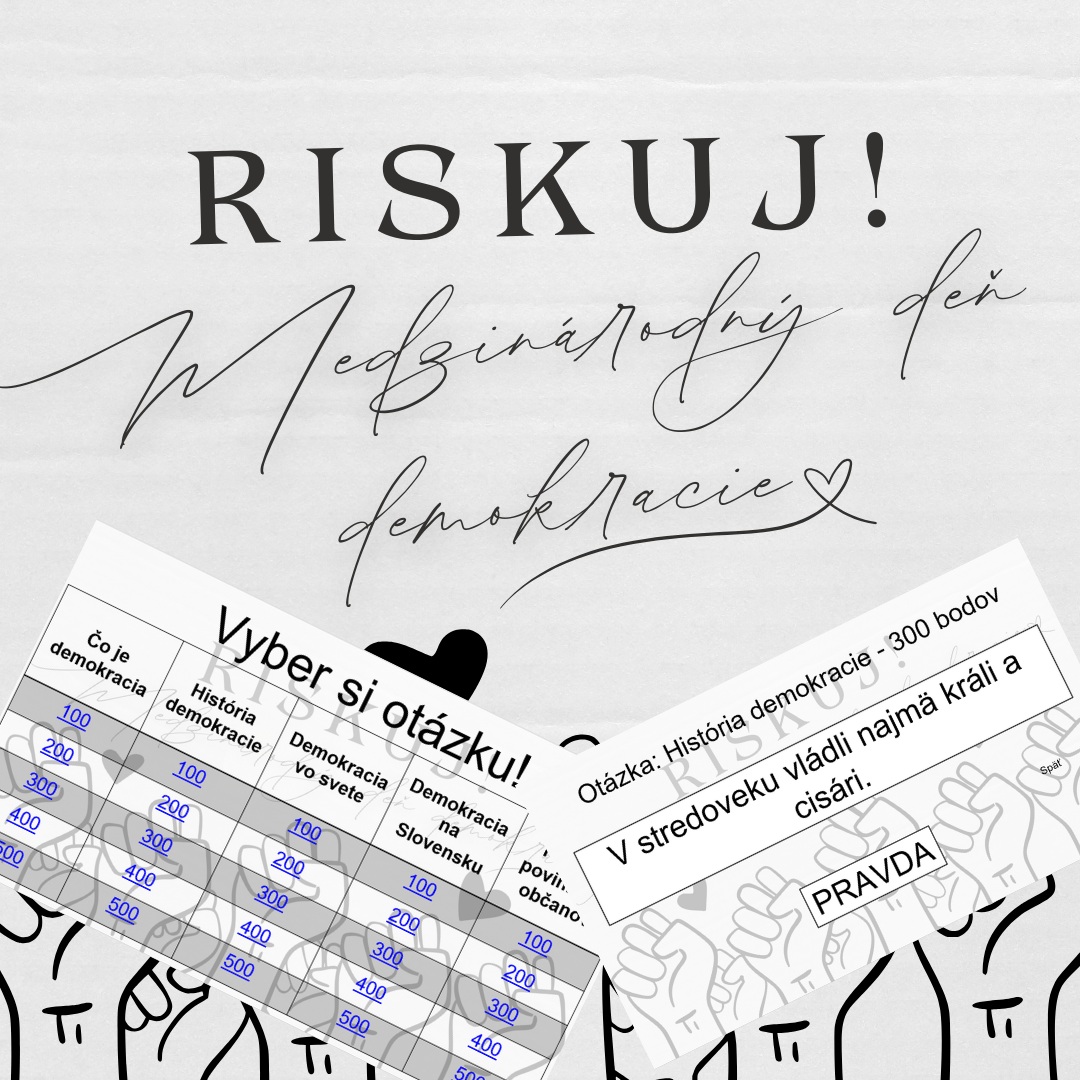 RISKUJ!
Medzinárodný deň
demokracie
Vyber si otázku!
Čo je
demokracia
História
demokracie
Demokracia
vo svete
Demokracia
na
Slovensku
100
100
100
100
100
200
200
200
200
200
300
300
300
300
300
400
400
400
400
400
500
500
500
500
Otázka: História demokracie - 300 bodov
V stredoveku vládli najmä králi a
cisári.
PRAVDA
Späť